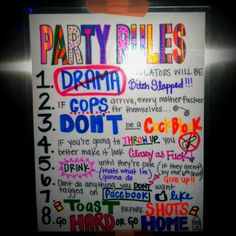 PARTY RULES
1. DRAMA VIOLATORS WILL BE
Bitch Slapped!!!
2. IF COPS arrive, every mother fucker
for themselves...
3. DON'T be a COCKBLOCK
4. IF you're going to THROW UP, you
better make it look Classy as Fuck
5. DRINK until they're cute / if they aren't
that's what I'm gonna do by the
GIVE UP!!
6. Don't do anything you DON'T want
tagged on Facebook
7. TOAST BEFORE SHOTS
8. GO HARD OR GO HOME